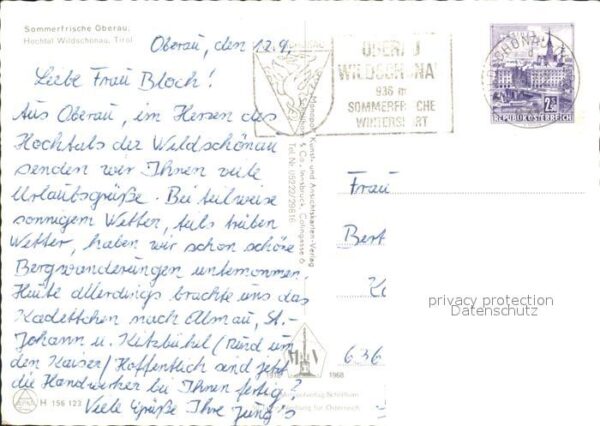 Sommerfrische Oberau,
Hochtal Wildschönau, Tirol
Oberau, den 12.9.
Liebe Frau Bloch!
Aus Oberau, im Herzen des
Hochtals der Wildschönau
senden wir Ihnen viele
Urlaubsgrüße. Bei teilweise
sonnigem Wetter, teils trüben
Wetter, haben wir schon schöne
Bergwanderungen unternommen.
Heute allerdings brachte uns das
Kadettchen nach Almau, St.-
Johann u. Kitzbühel (Rund um
den Kaiser) Hoffentlich sind jetzt
die Handwerker bei Ihnen fertig?
Viele Grüße Ihre Jung's
H 156 123
OBERAU
WILDSCHÖNA
936 m
SOMMERFRISCHE
WINTERSPORT
2
REPUBLIK ÖSTERREICH
Monopol Kunst- und Ansichtskarten-Verlag
& Co., Innsbruck, Göllngasse 6
Tel Nr. 05222/29816
Frau
Bert
privacy protection
Datenschutz
636
1968